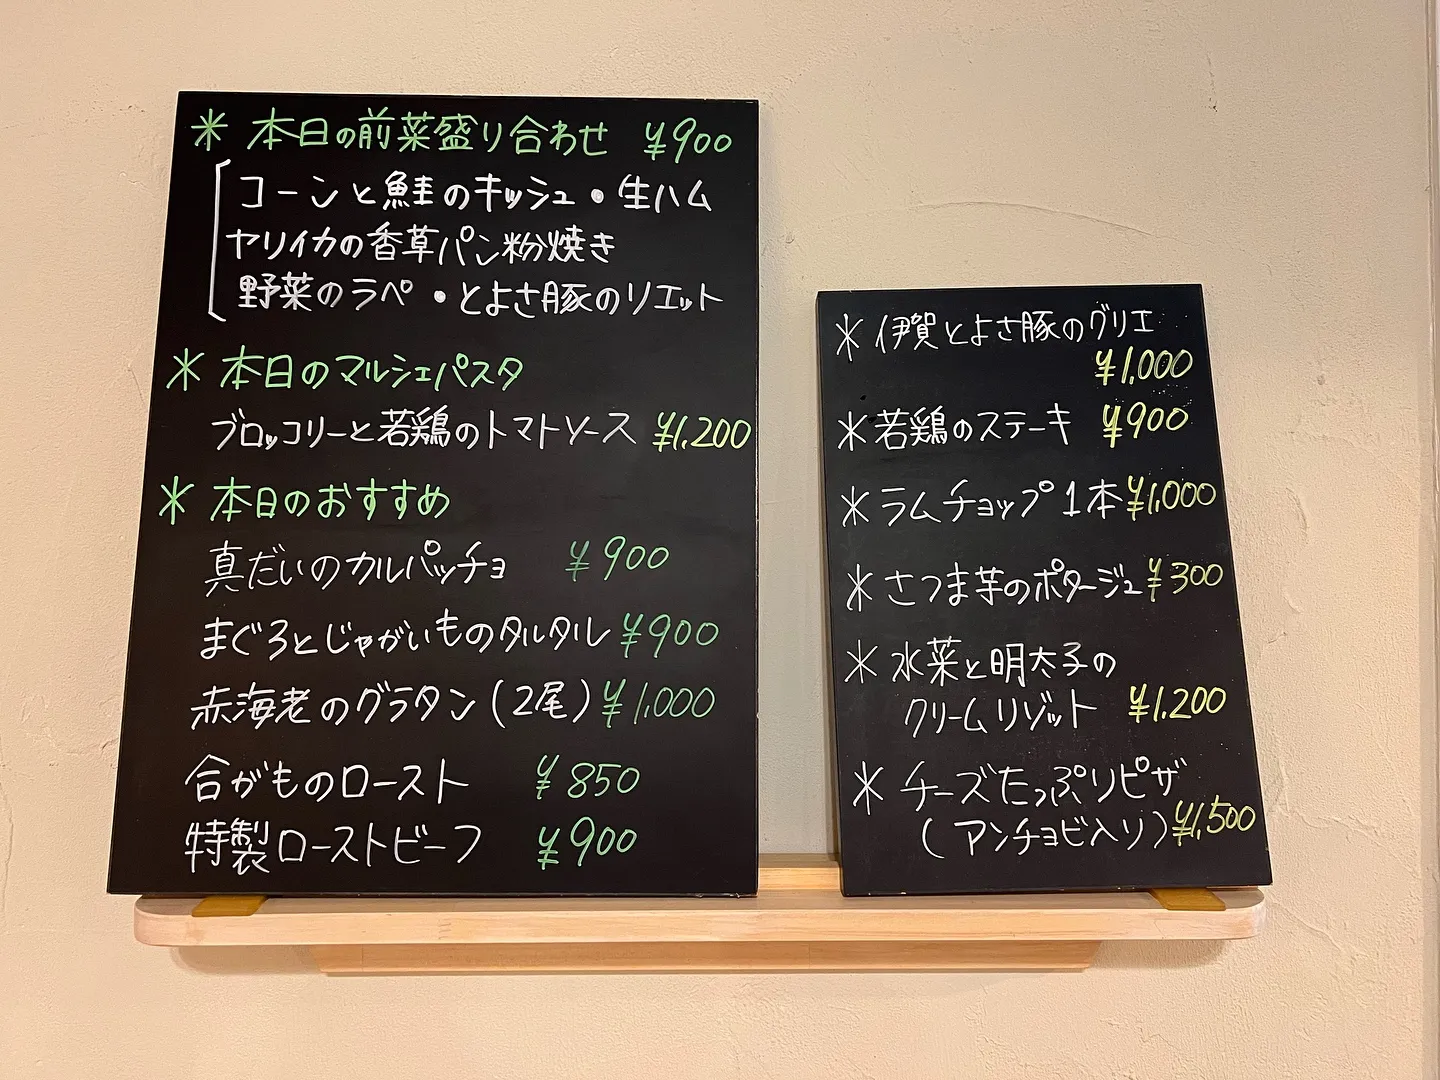 * 本日の前菜盛り合わせ ¥900
コーンと鮭のキッシュ・生ハム
ヤリイカの香草パン粉焼き
野菜のラペ・とよさ豚のリエット
* 本日のマルシェパスタ
ブロッコリーと若鶏のトマトソース ¥1,200
* 本日のおすすめ
真だいのカルパッチョ ¥900
まぐろとじゃがいものタルタル ¥900
赤海老のグラタン(2尾) ¥1,000
合がものロースト ¥850
特製ローストビーフ ¥900
* 伊賀とよさ豚のグリエ
¥1,000
* 若鶏のステーキ ¥900
* ラムチョップ1本 ¥1,000
* さつま芋のポタージュ ¥300
* 水菜と明太子の
クリームリゾット ¥1,200
* チーズたっぷりピザ
(アンチョビ入り) ¥1,500